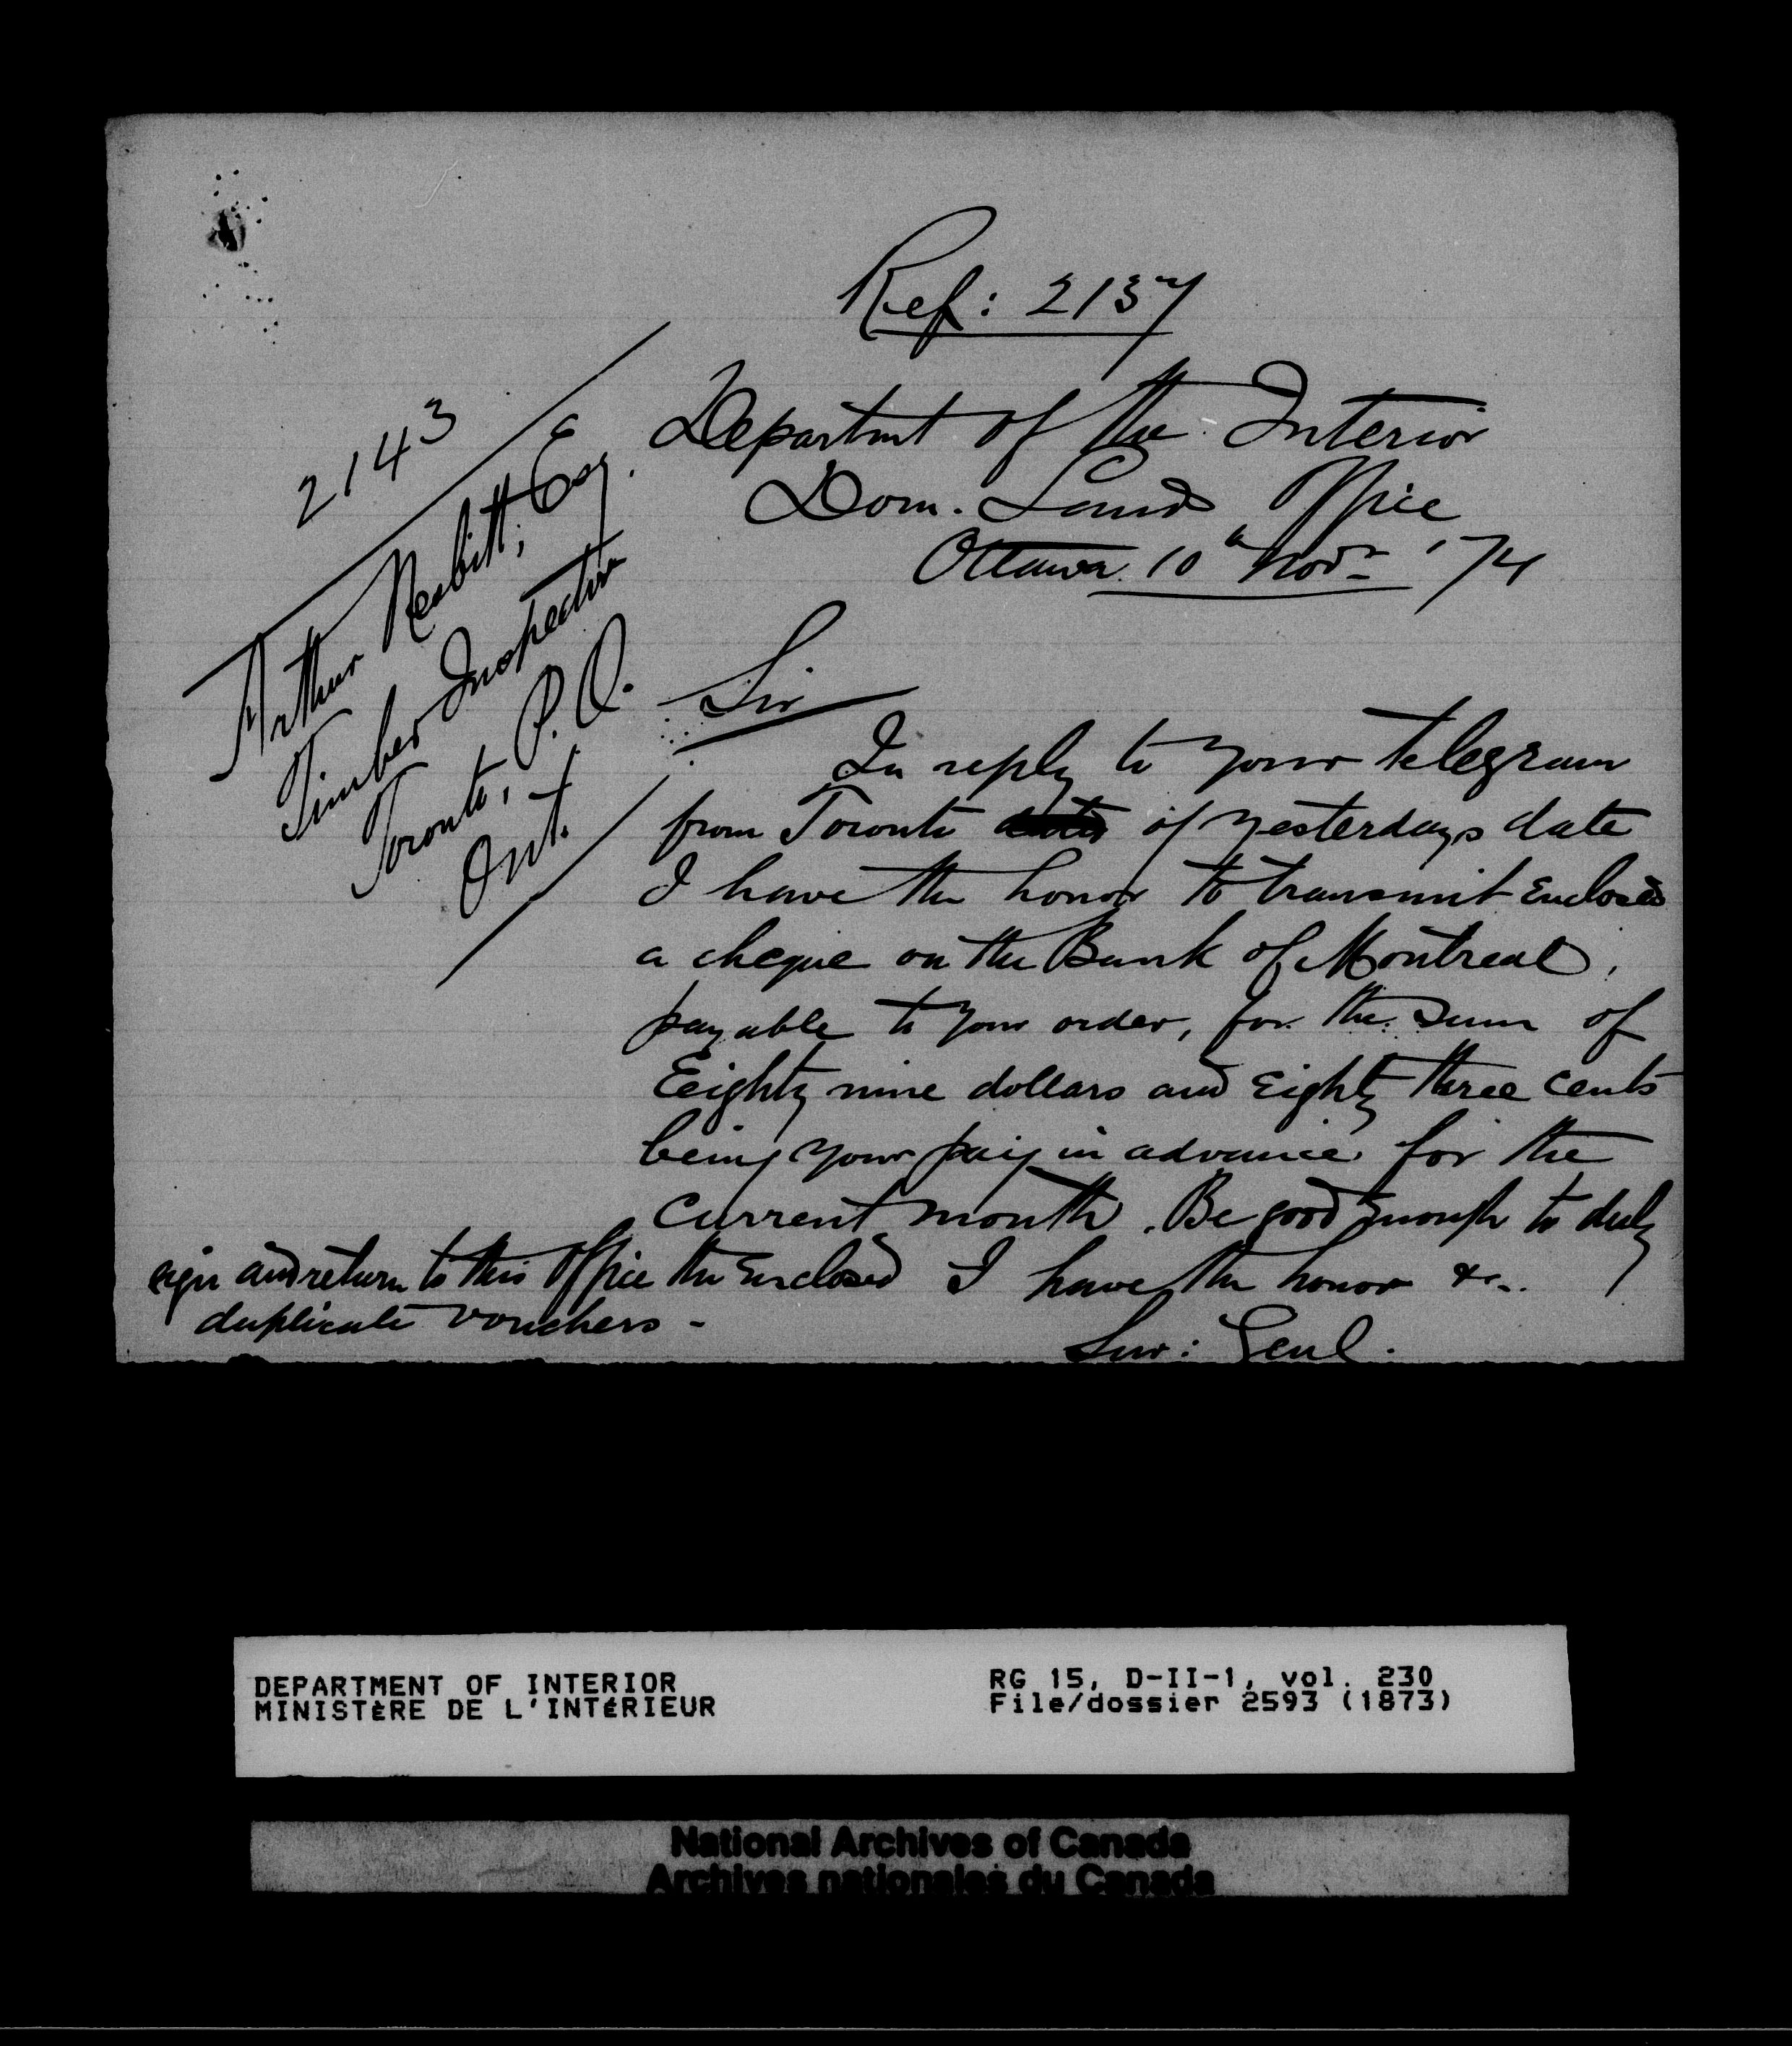 Ref: 2137
2143
Arthur Nesbitt, Esq.
Timber Inspector
Toronto, P.O.
Ont.
Departmt of the Interior
Dom. Lands Office
Ottawa 10th Novr '74
Sir
In reply to your telegram
from Toronto of yesterdays date
I have the honor to transmit Enclosed
a cheque on the Bank of Montreal,
payable to your order, for the sum of
Eeighty nine dollars and Eighty three cents
being your pay in advance for the
current month. Be good Enough to duly
sign and return to this Office the Enclosed
duplicate vouchers -
I have the honor &c.
Sur: Genl.
DEPARTMENT OF INTERIOR
MINISTÈRE DE L'INTÉRIEUR
RG 15, D-II-1, vol. 230
File/dossier 2593 (1873)
National Archives of Canada
Archives nationales du Canada